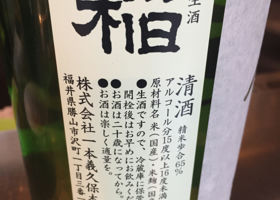 生酒
稲
清酒
精米歩合65%
アルコール分15度以上16度未満
原材料名 米(国産)・米麹(国
●生酒ですので、冷蔵庫に保管
開栓後はお早めにお飲みくだ
●お酒は二十歳になってから。
●お酒は楽しく適量を。
株式会社一本義久保本
福井県勝山市沢町一丁目三番